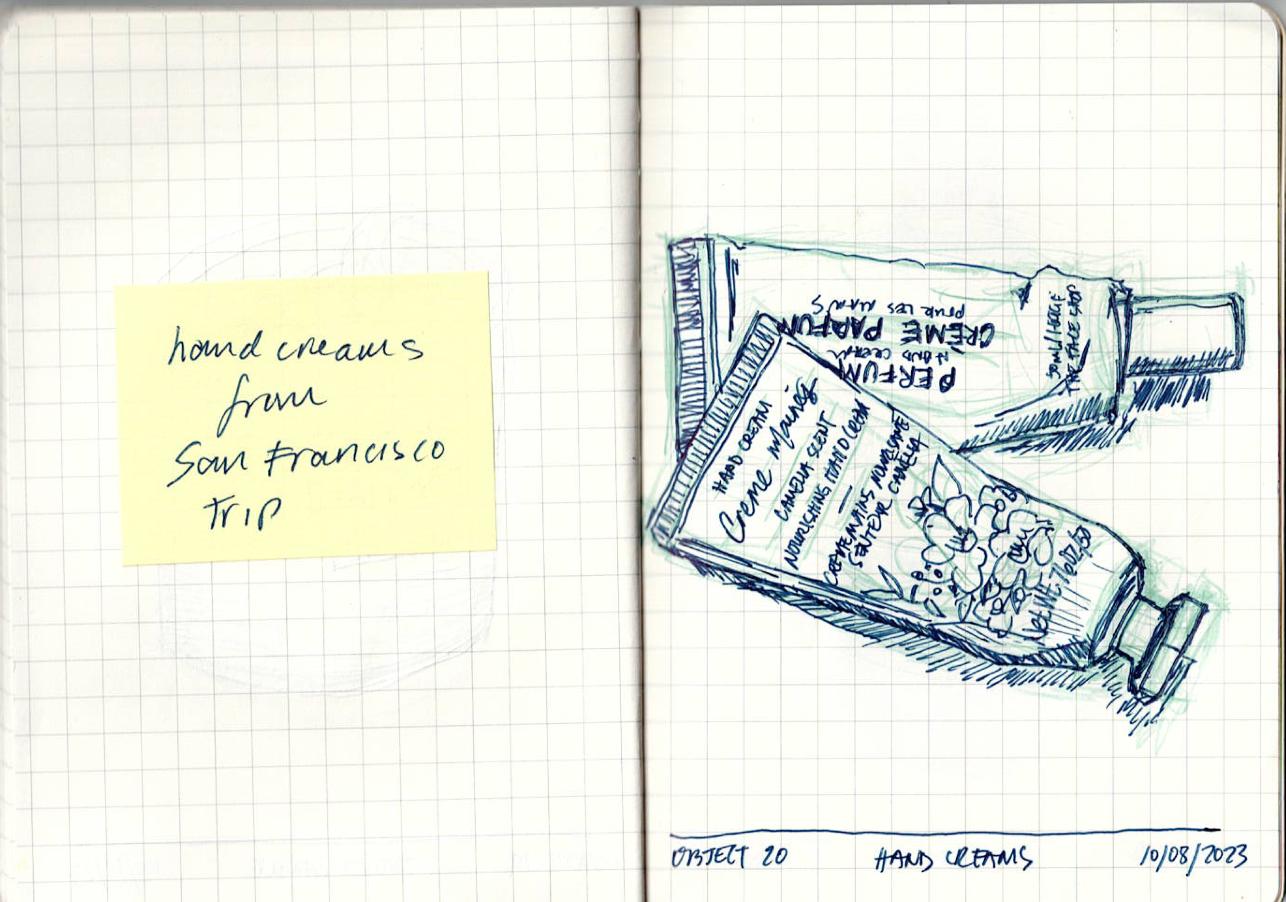 hand creams
from
San Francisco
trip
PERFUM
HAND CREAM
CRÈME PARFUM
POUR LES MAINS
THE FACE SHOP
HAND CREAM
Creme Mains
CAMELIA SCENT
NOURISHING HAND CREAM
CREME MAINS
SENTEUR CAMELIA
Net Wt.
OBJECT 20
HAND CREAMS
10/08/2023